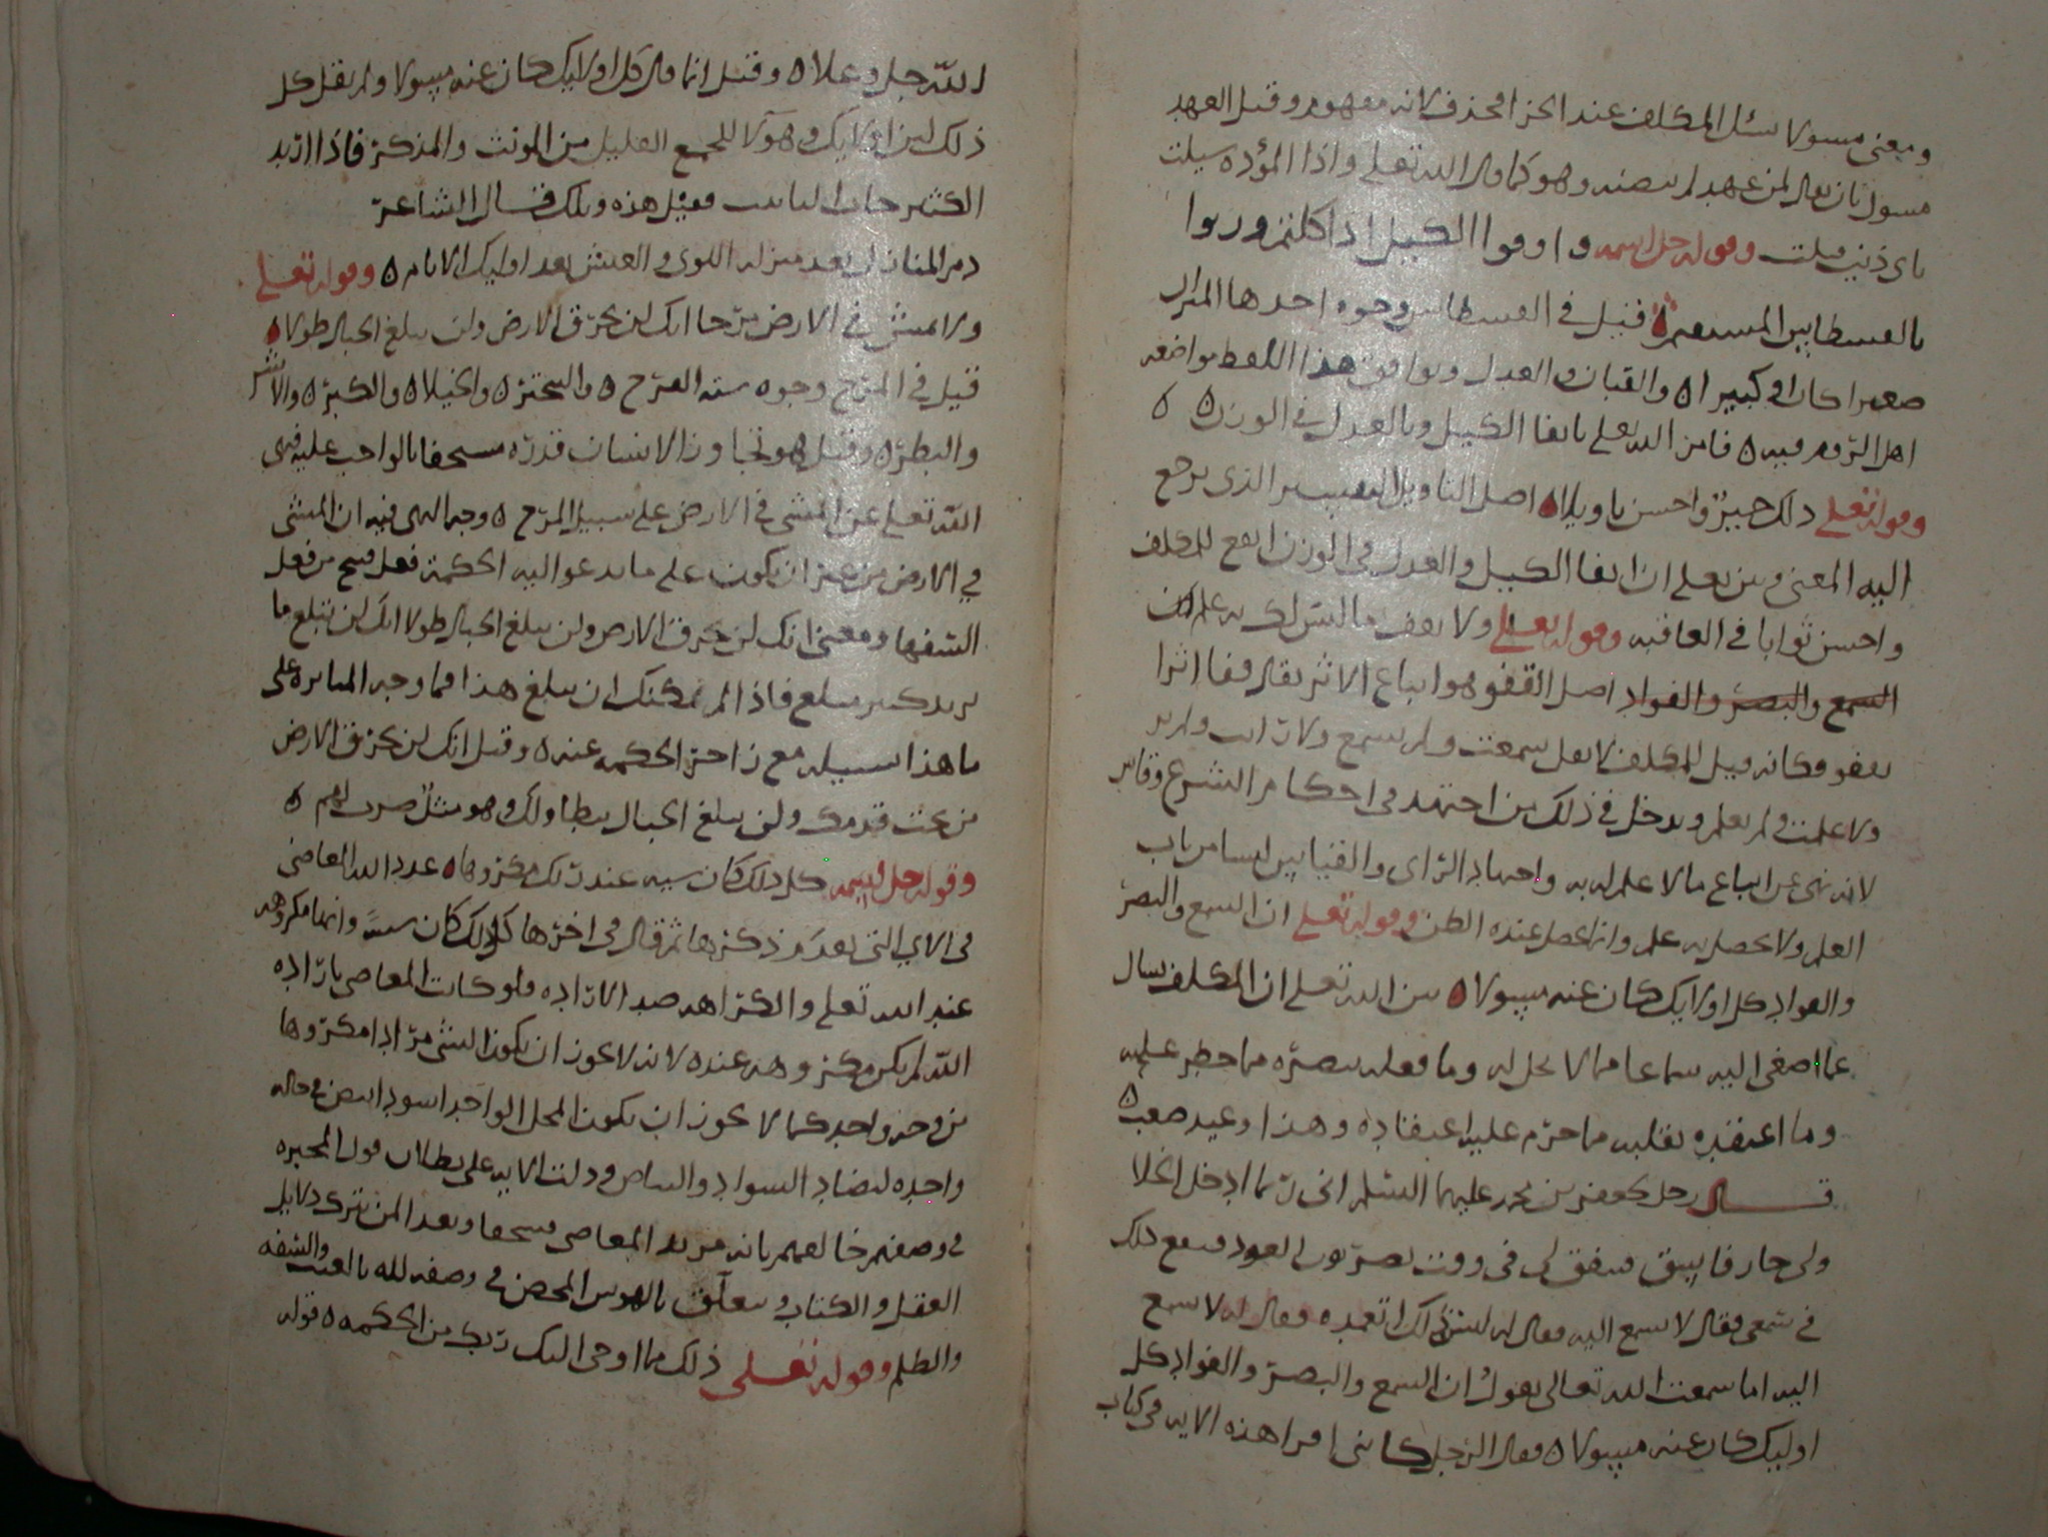 ومعنى مسولا سئل المكلف عند الجزا فحذف لانه مفهوم وقيل العهد
مسول بان يقال لمن عهد لم وهو كما قال الله تعلى واذا المؤده سيلت
باى ذنب قتلت وقوله جل اسمه واوفوا الكيل اذا كلتم وزنوا
بالقسطاس المستقيم ه قيل في القسطاس وجوه احدها الميزان
صغيرا كان او كبيرا ه والقبان والعدل ويوافق هذا اللفظ مواضعه
اهل الروم فيه ه فامر الله تعلى بايفا الكيل وبالعدل في الوزن ه ه
وقوله تعلى ذلك خير واحسن تاويلا ه اصل التاويل التفسير الذى يرجع
اليه المعنى وبين تعلى ان ايفا الكيل والعدل في الوزن انفع للمكلف
واحسن ثوابا في العاقبه وقوله تعلى ولا تقف ما ليس لك به علم ان
السمع والبصر والفواد اصل القفو هو اتباع الاثر يقال قفا اثرا
يقفو فكانه قيل للمكلف لا تقل سمعت ولم تسمع ولا رايت ولم تر
ولا علمت ولم تعلم ويدخل في ذلك من اجتهد في احكام الشرع وقاس
لانه نهى عن اتباع ما لا علم له به واجتهاد الراى والقياس ليسا من باب
العلم ولا يحصل به علم وانما يحصل عنده الظن وقوله تعلى ان السمع والبصر
والفواد كل اولايك كان عنه مسولا ه بين الله تعلى ان المكلف يسال
عما اصغى اليه سماعا مما لا يحل له وما فعله ببصره مما حظر عليه
وما اعتقده بقلبه مما حرم عليه اعتقاده وهذا وعيد صعب ه
قال رجل لجعفر بن محمد عليهما السلم انى ربما ادخل الخلا
ولى جار فاسق فيتفق لى في وقت العود فيقع ذلك
في سمعى فقال لا تسمع اليه فقال له ليس اتعمده فقال له لا تسمع
اليه اما سمعت الله تعالى يقول ان السمع والبصر والفواد كل
اوليك كان عنه مسولا ه فقال الرجل كانى لم اقرا هذه الايه في كتاب
الله جل وعلا ه وقيل انما قال كل اولايك كان عنه مسولا ولم يقل كل
ذلك لان اولايك وهولا للجمع القليل من المونث والمذكر فاذا اريد
الكثير جا التانيث فقيل هذه وتلك قال الشاعر
ذم المنازل بعد منزله اللوى والعيش بعد اوليك الايام ه وقوله تعلى
ولا تمش في الارض مرحا انك لن تخرق الارض ولن تبلغ الجبال طولا ه
قيل في المرح وجوه ستة الفرح ه والتبختر ه والخيلا ه والكبر ه والاشر
والبطر ه وقيل هو تجاوز الانسان قدره مستخفا بالواجب عليه فنهى
الله تعلى عن المشى في الارض على سبيل المرح ه وجه النهى فيه ان المشى
في الارض من غير ان يكون على ما يدعو اليه الحكمة فعل قبيح من فعل
السفها ومعنى انك لن تخرق الارض ولن تبلغ الجبال طولا انك لن تبلغ ما
تريد كثير مبلغ فاذا لم يمكنك ان تبلغ هذا فما وجه المثابره على
ما هذا سبيله مع زاجر الحكمه عنه ه وقيل انك لن تخرق الارض
من تحت قدمك ولن تبلغ الجبال بتطاولك وهو مثل ضرب لهم ه
وقوله جل اسمه كل ذلك كان سيه عند ربك مكروها ه عدد الله المعاصى
في الاى التى تقدم ذكرها ثم قال في اخرها كل ذلك كان سيئه وانها مكروهه
عند الله تعلى والكراهه ضد الاراده ولو كانت المعاصى باراده
الله لم يكن مكروهه عنده لانه لا يجوز ان يكون الشى مرادا مكروها
من وجه واحد كما لا يجوز ان يكون المحل الواحد اسود ابيض في حاله
واحده لتضاد السواد والبياض ودلت الايه على بطلان قول المجبره
في وصفهم خالقهم بانه مريد المعاصى فسحقا وبعدا لمن يترك دلايل
العقل والكتاب ويتعلق بالهوس المحض في وصفه لله بالعبث والسفه
والظلم وقوله تعلى ذلك مما اوحى اليك ربك من الحكمه ه قوله